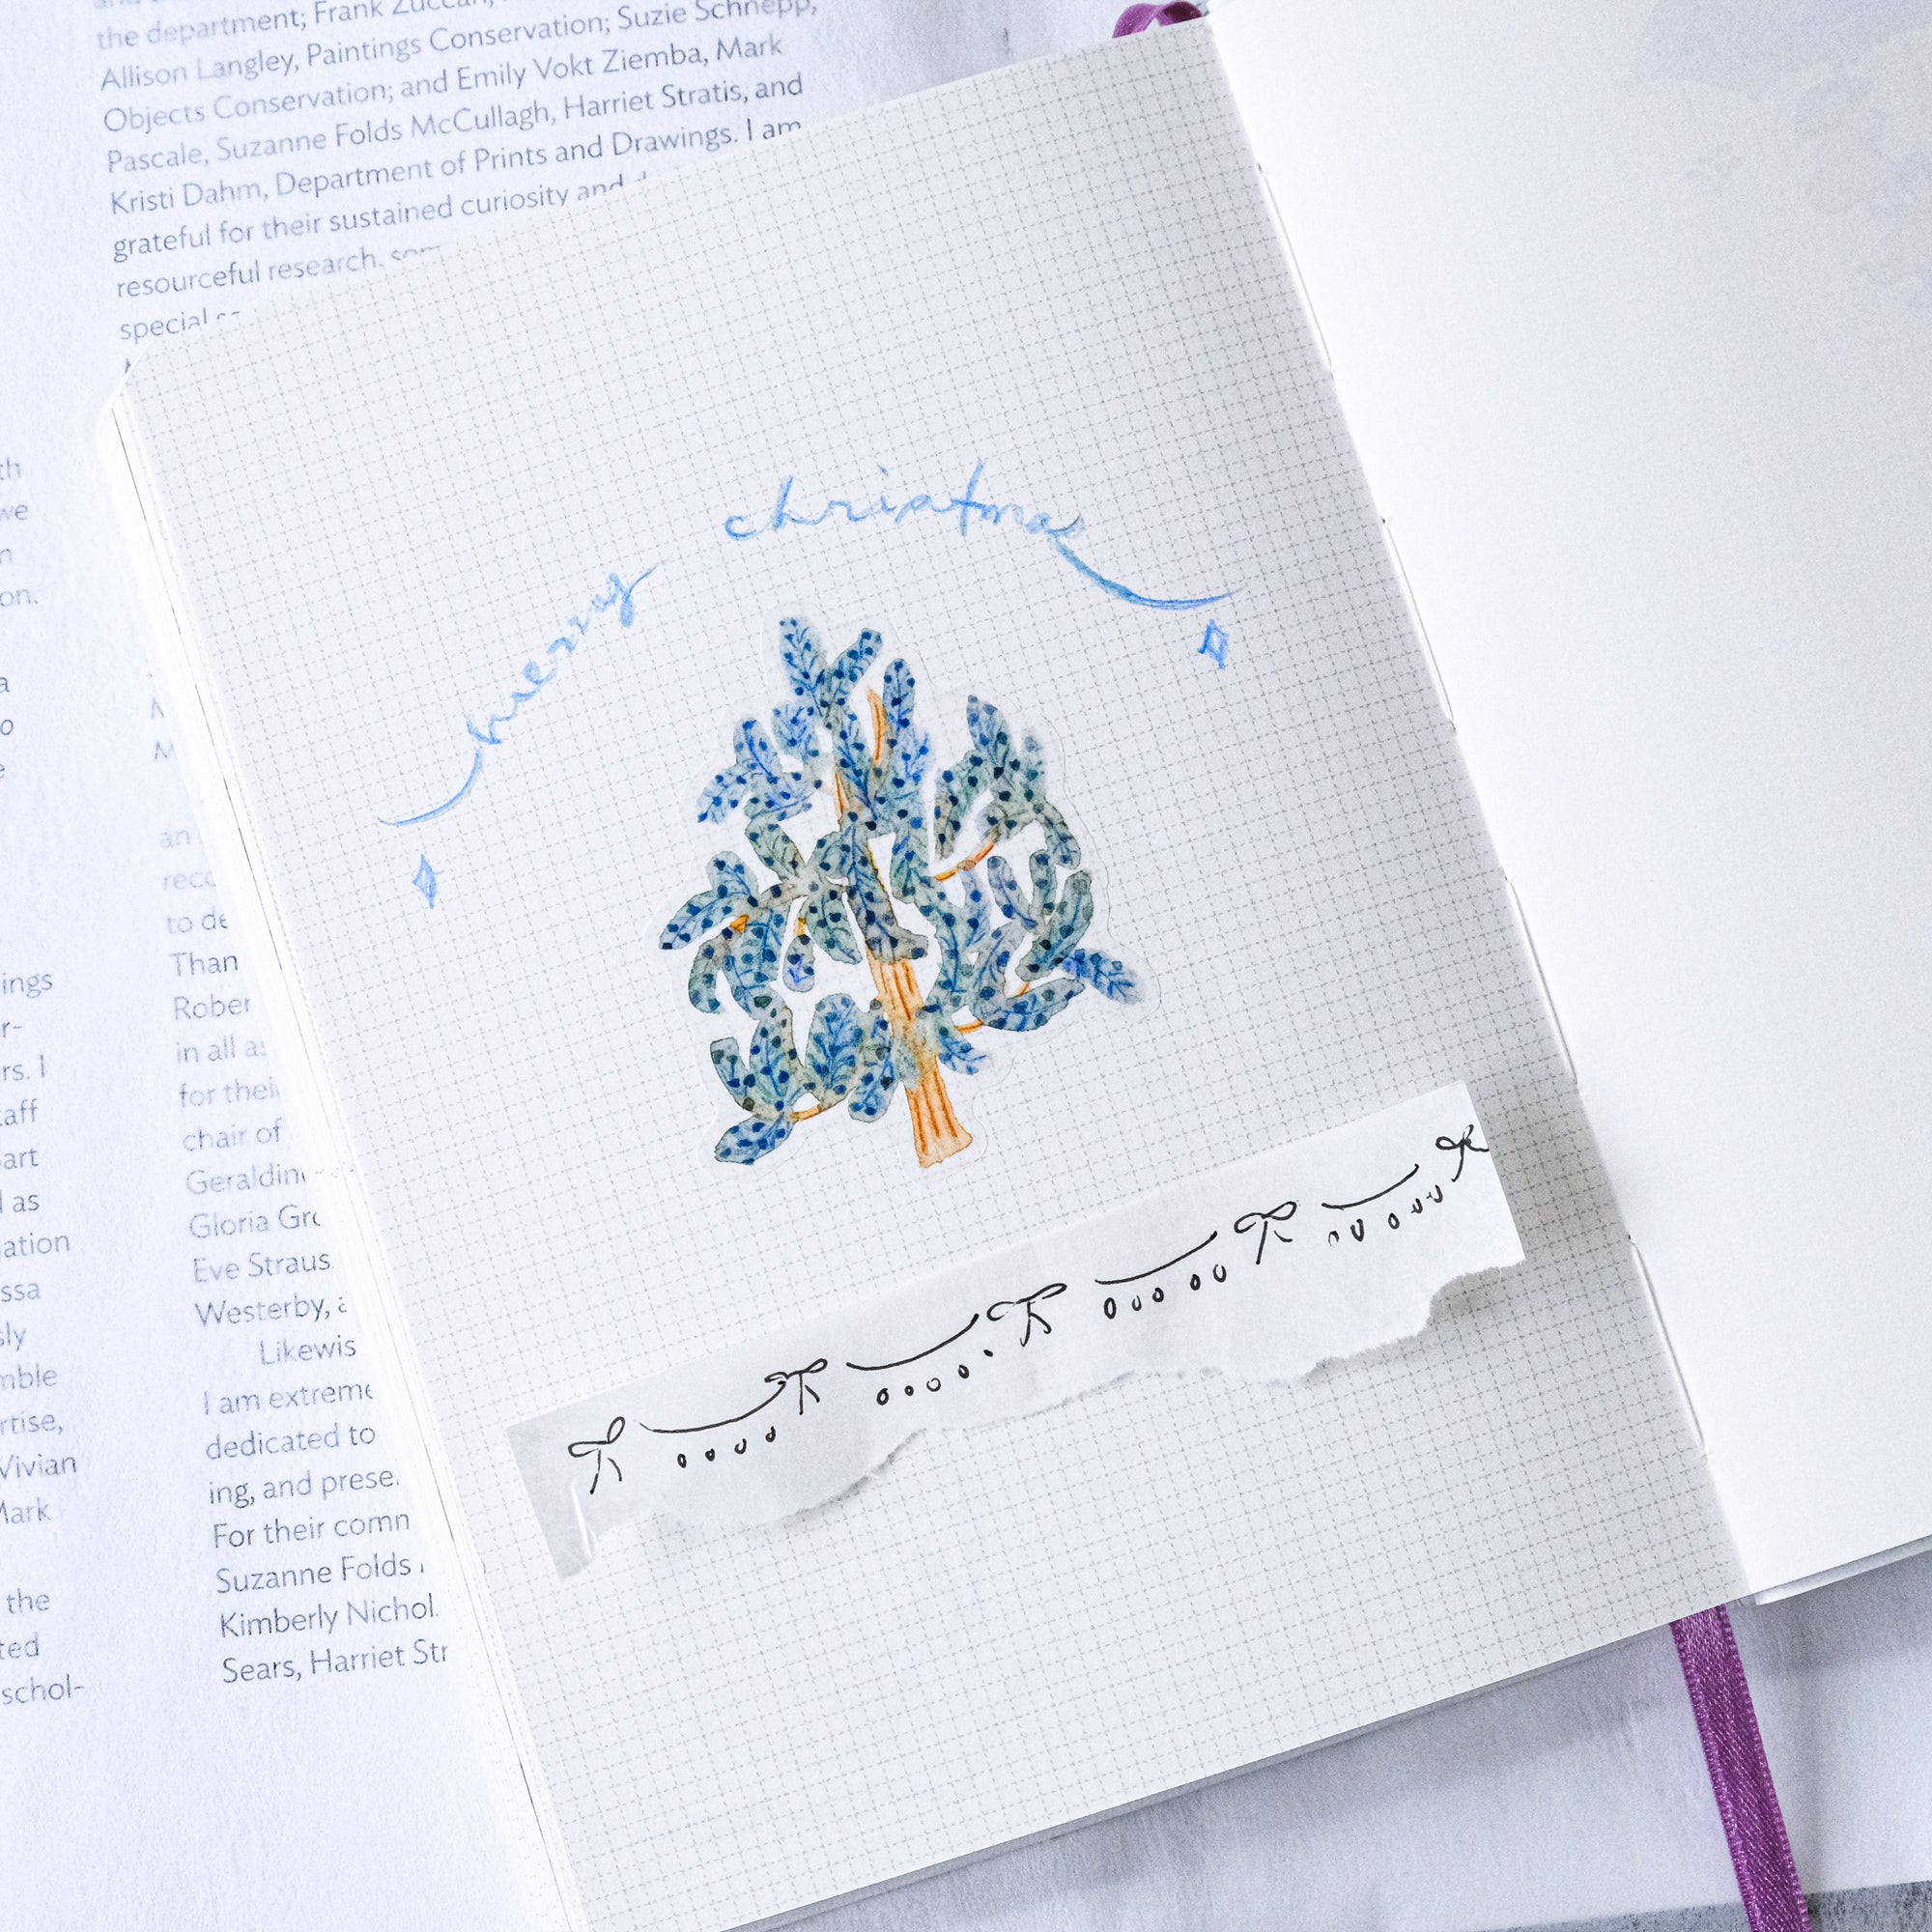 the department; Frank Zuccari,
Allison Langley, Paintings Conservation; Suzie Schnepp,
Objects Conservation; and Emily Vokt Ziemba, Mark
Pascale, Suzanne Folds McCullagh, Harriet Stratis, and
Kristi Dahm, Department of Prints and Drawings. I am
grateful for their sustained curiosity and
resourceful research,
special
merry christmas
th
we
n
on.
a
o
e
ings
r-
rs. I
taff
part
l as
ation
ssa
sly
mble
rtise,
Vivian
Mark
the
ted
schol-
an
recc
to de
Than
Rober
in all as
for thei
chair of
Geraldin
Gloria Gr
Eve Straus
Westerby, a
Likewis
I am extreme
dedicated to
ing, and prese
For their comn
Suzanne Folds
Kimberly Nichol
Sears, Harriet Str